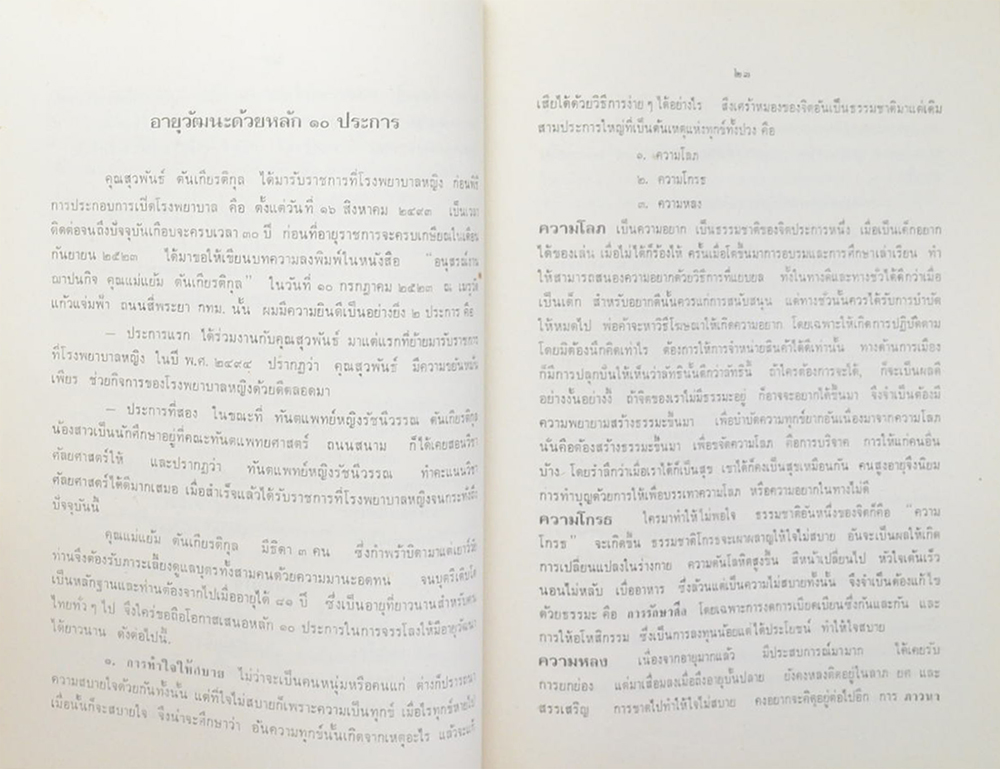 อายุวัฒนะด้วยหลัก ๑๐ ประการ
คุณสุวพันธ์ ตันเกียรติกุล ได้มารับราชการที่โรงพยาบาลหญิง ก่อนพิธี
การประกอบการเปิดโรงพยาบาล คือ ตั้งแต่วันที่ ๑๖ สิงหาคม ๒๔๙๓ เป็นเวลา
ติดต่อจนถึงปัจจุบันเกือบจะครบเวลา ๓๐ ปี ก่อนที่อายุราชการจะครบเกษียณในเดือน
กันยายน ๒๕๒๓ ได้มาขอให้เขียนบทความลงพิมพ์ในหนังสือ "อนุสรณ์งาน
ฌาปนกิจ คุณแม่แย้ม ตันเกียรติกุล" ในวันที่ ๑๐ กรกฎาคม ๒๕๒๓ ณ เมรุวัด
แก้วแจ่มฟ้า ถนนสี่พระยา กทม. นั้น ผมมีความยินดีเป็นอย่างยิ่ง ๒ ประการ คือ
— ประการแรก ได้ร่วมงานกับคุณสุวพันธ์ มาแต่แรกที่ย้ายมารับราชการ
ที่โรงพยาบาลหญิง ในปี พ.ศ. ๒๔๙๔ ปรากฏว่า คุณสุวพันธ์ มีความขยันหมั่น
เพียร ช่วยกิจการของโรงพยาบาลหญิงด้วยดีตลอดมา
— ประการที่สอง ในขณะที่ ทันตแพทย์หญิงรัชนิวรรณ ตันเกียรติกุล
น้องสาวเป็นนักศึกษาอยู่ที่คณะทันตแพทยศาสตร์ ถนนสนาม ก็ได้เคยสอนวิชา
ศัลยศาสตร์ให้ และปรากฏว่า ทันตแพทย์หญิงรัชนิวรรณ ทำคะแนนวิชา
ศัลยศาสตร์ได้ดีมากเสมอ เมื่อสำเร็จแล้วได้รับราชการที่โรงพยาบาลหญิงจนกระทั่งถึง
ปัจจุบันนี้
คุณแม่แย้ม ตันเกียรติกุล มีธิดา ๓ คน ซึ่งกำพร้าบิดามาแต่เยาว์วัย
ท่านจึงต้องรับภาระเลี้ยงดูแลบุตรทั้งสามคนด้วยความมานะอดทน จนบุตรเติบโต
เป็นหลักฐานและท่านต้องจากไปเมื่ออายุได้ ๘๑ ปี ซึ่งเป็นอายุที่ยาวนานสำหรับคน
ไทยทั่ว ๆ ไป จึงใคร่ขอถือโอกาสเสนอหลัก ๑๐ ประการในการจรรโลงให้มีอายุวัฒนะ
ได้ยาวนาน ดังต่อไปนี้.
๑. การทำใจให้สบาย ไม่ว่าจะเป็นคนหนุ่มหรือคนแก่ ต่างก็ปรารถนา
ความสบายใจด้วยกันทั้งนั้น แต่ที่ใจไม่สบายก็เพราะความเป็นทุกข์ เมื่อไรทุกข์หายไป
เมื่อนั้นก็จะสบายใจ จึงน่าจะศึกษาว่า อันความทุกข์นั้นเกิดจากเหตุอะไร แล้วจะแก้
๒๑
เสียได้ด้วยวิธีการง่าย ๆ ได้อย่างไร สิ่งเศร้าหมองของจิตอันเป็นธรรมชาติมาแต่เดิม
สามประการใหญ่ที่เป็นต้นเหตุแห่งทุกข์ทั้งปวง คือ
๑. ความโลภ
๒. ความโกรธ
๓. ความหลง
ความโลภ เป็นความอยาก เป็นธรรมชาติของจิตประการหนึ่ง เมื่อเป็นเด็กอยาก
ได้ของเล่น เมื่อไม่ได้ก็ร้องไห้ ครั้นเมื่อโตขึ้นมาการอบรมและการศึกษาเล่าเรียน ทำ
ให้สามารถสนองความอยากด้วยวิธีการที่แยบยล ทั้งในทางดีและทางชั่วได้ดีกว่าเมื่อ
เป็นเด็ก สำหรับอยากดีนั้นควรแก่การสนับสนุน แต่ทางชั่วนั้นควรได้รับการบำบัด
ให้หมดไป พ่อค้าจะหาวิธีโฆษณาให้เกิดความอยาก โดยเฉพาะให้เกิดการปฏิบัติตาม
โดยมิต้องนึกคิดเท่าไร ต้องการให้การจำหน่ายสินค้าได้ดีเท่านั้น ทางด้านการเมือง
ก็มีการปลุกปั่นให้เห็นว่าลัทธินั้นดีกว่าลัทธินี้ ถ้าใครต้องการจะได้, ก็จะเป็นผลดี
อย่างงั้นอย่างงี้ ถ้าจิตของเราไม่มีธรรมะอยู่ ก็อาจจะอยากได้ขึ้นมา จึงจำเป็นต้องมี
ความพยายามสร้างธรรมะขึ้นมา เพื่อบำบัดความทุกข์ยากอันเนื่องมาจากความโลภ
นั่นคือต้องสร้างธรรมะขึ้นมา เพื่อขจัดความโลภ คือการบริจาค การให้แก่คนอื่น
บ้าง โดยรำลึกว่าเมื่อเราได้ก็เป็นสุข เขาได้ก็คงเป็นสุขเหมือนกัน คนสูงอายุจึงนิยม
การทำบุญด้วยการให้เพื่อบรรเทาความโลภ หรือความอยากในทางไม่ดี
ความโกรธ ใครมาทำให้ไม่พอใจ ธรรมชาติอันหนึ่งของจิตก็คือ "ความ
โกรธ" จะเกิดขึ้น ธรรมชาติโกรธจะเผาผลาญให้ใจไม่สบาย อันจะเป็นผลให้เกิด
การเปลี่ยนแปลงในร่างกาย ความดันโลหิตสูงขึ้น สีหน้าเปลี่ยนไป หัวใจเต้นเร็ว
นอนไม่หลับ เบื่ออาหาร ซึ่งล้วนแต่เป็นความไม่สบายทั้งนั้น จึงจำเป็นต้องแก้ไข
ด้วยธรรมะ คือ การรักษาศีล โดยเฉพาะการงดการเบียดเบียนซึ่งกันและกัน และ
การให้อโหสิกรรม ซึ่งเป็นการลงทุนน้อยแต่ได้ประโยชน์ ทำให้ใจสบาย
ความหลง เนื่องจากอายุมากแล้ว มีประสบการณ์มามาก ได้เคยรับ
การยกย่อง แต่มาเสื่อมลงเมื่อถึงอายุบั้นปลาย ยังคงหลงติดอยู่ในลาภ ยศ และ
สรรเสริญ การขาดไปทำให้ใจไม่สบาย คงอยากจะคิดอยู่ต่อไปอีก การ ภาวนา